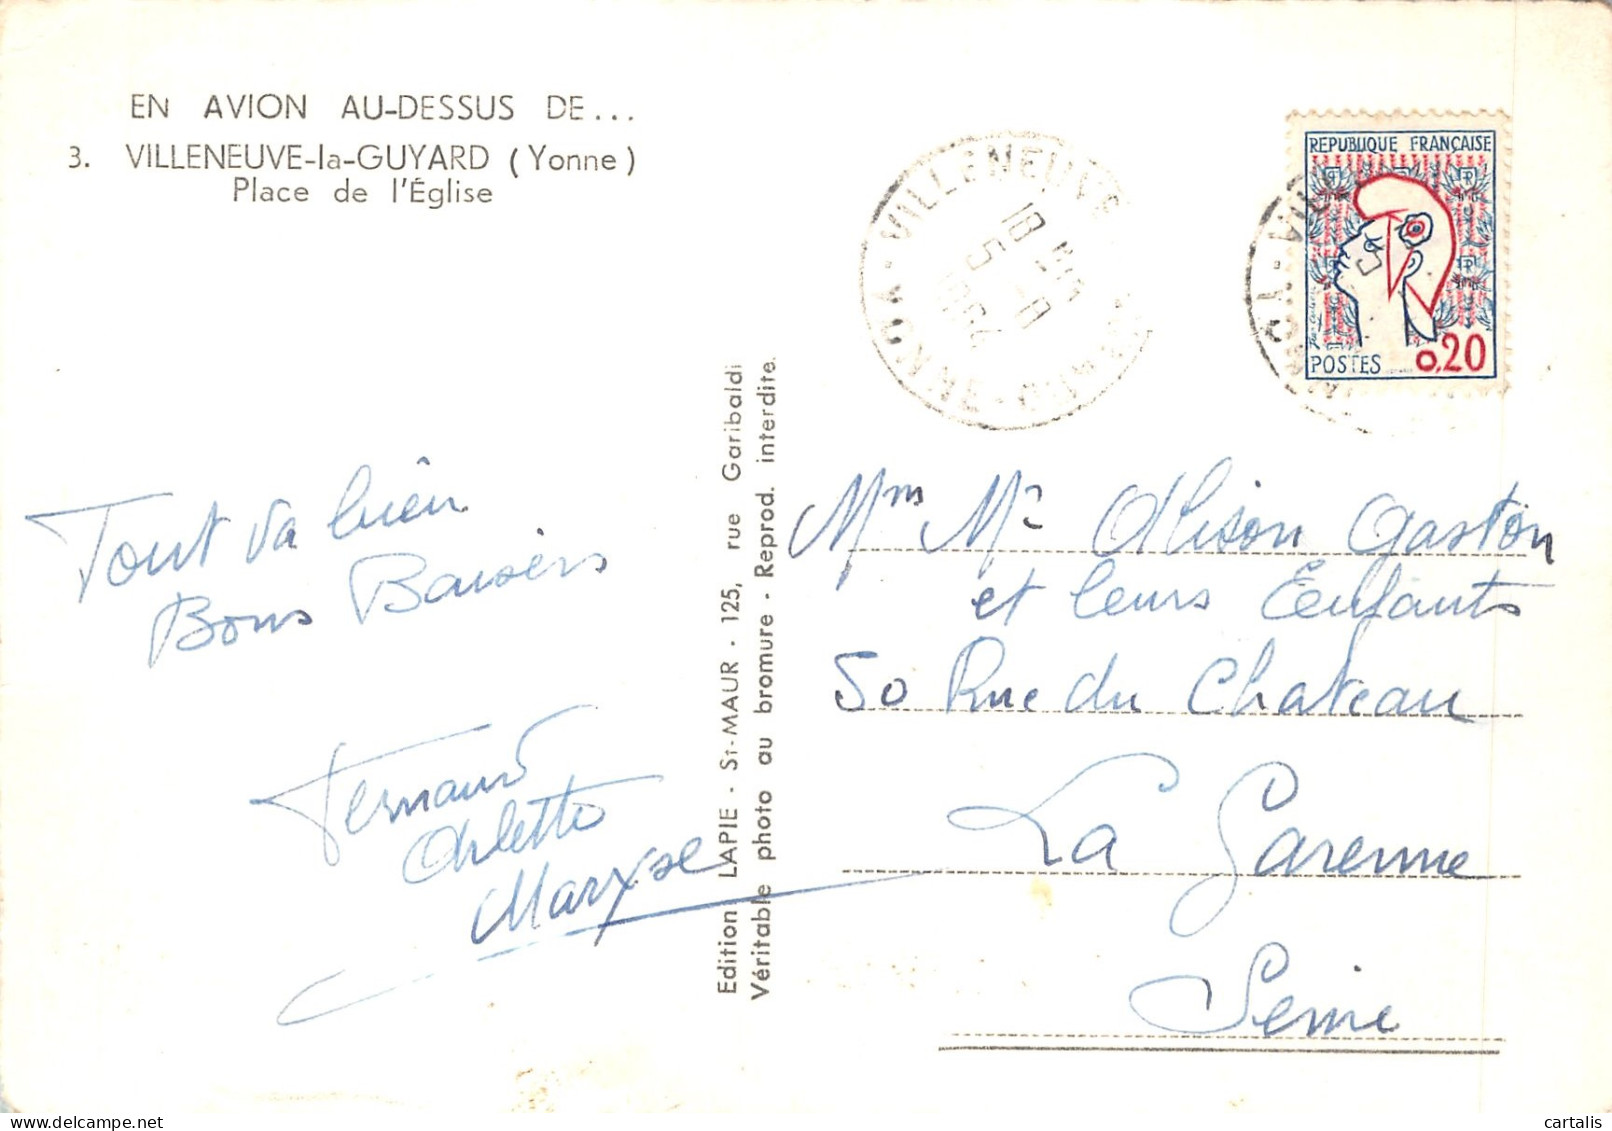 EN AVION AU-DESSUS DE...
3. VILLENEUVE-la-GUYARD (Yonne)
Place de l'Église
Tout va bien
Bons Baisers
Fernand
Arlette
Maryse
Edition LAPIE - St-MAUR - 125, rue Garibaldi
Véritable photo au bromure - Reprod. interdite.
VILLENEUVE
18
5
1964
YONNE
REPUBLIQUE FRANÇAISE
POSTES 0,20
Mme Mr Alison Gaston
et leurs Enfants
50 Rue du Chateau
La Garenne
Seine
delcampe.net
cartalis